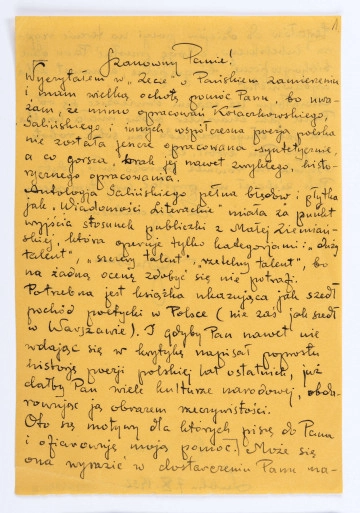 1
Szanowny Panie!
Wyczytałem w „Zecie" o Pańskiem zamierzeniu
i mam wielką ochotę pomóc Panu, bo uwa-
żam, że mimo opracowań Kołaczkowskiego,
Galińskiego i innych, współczesna poezja polska
nie została jeszcze opracowana syntetycznie,
a co gorsza, brak jej nawet zwykłego, histo-
rycznego opracowania.
Antologja Galińskiego pełna błędów i płytka
jak „Wiadomości Literackie" miała za punkt
wyjścia stosunek publiczki z Małej Ziemiań-
skiej, która operuje tylko kategorjami: „duży
talent", „szczery talent", „rzetelny talent", bo
na żadną ocenę zdobyć się nie potrafi.
Potrzebna jest książka ukazująca jak szedł
pochód poetycki w Polsce (nie zaś jak szedł
w Warszawie). I gdyby Pan nawet nie
wdając się w krytykę napisał poprostu
historję poezji polskiej lat ostatnich, już
dałby Pan wiele kulturze narodowej, obda-
rowując ją obrazem rzeczywistości.
Oto są motywy dla których piszę do Pana
i ofiarowuję moją pomoc. Może się
ona wyrazić w dostarczeniu Panu ma-